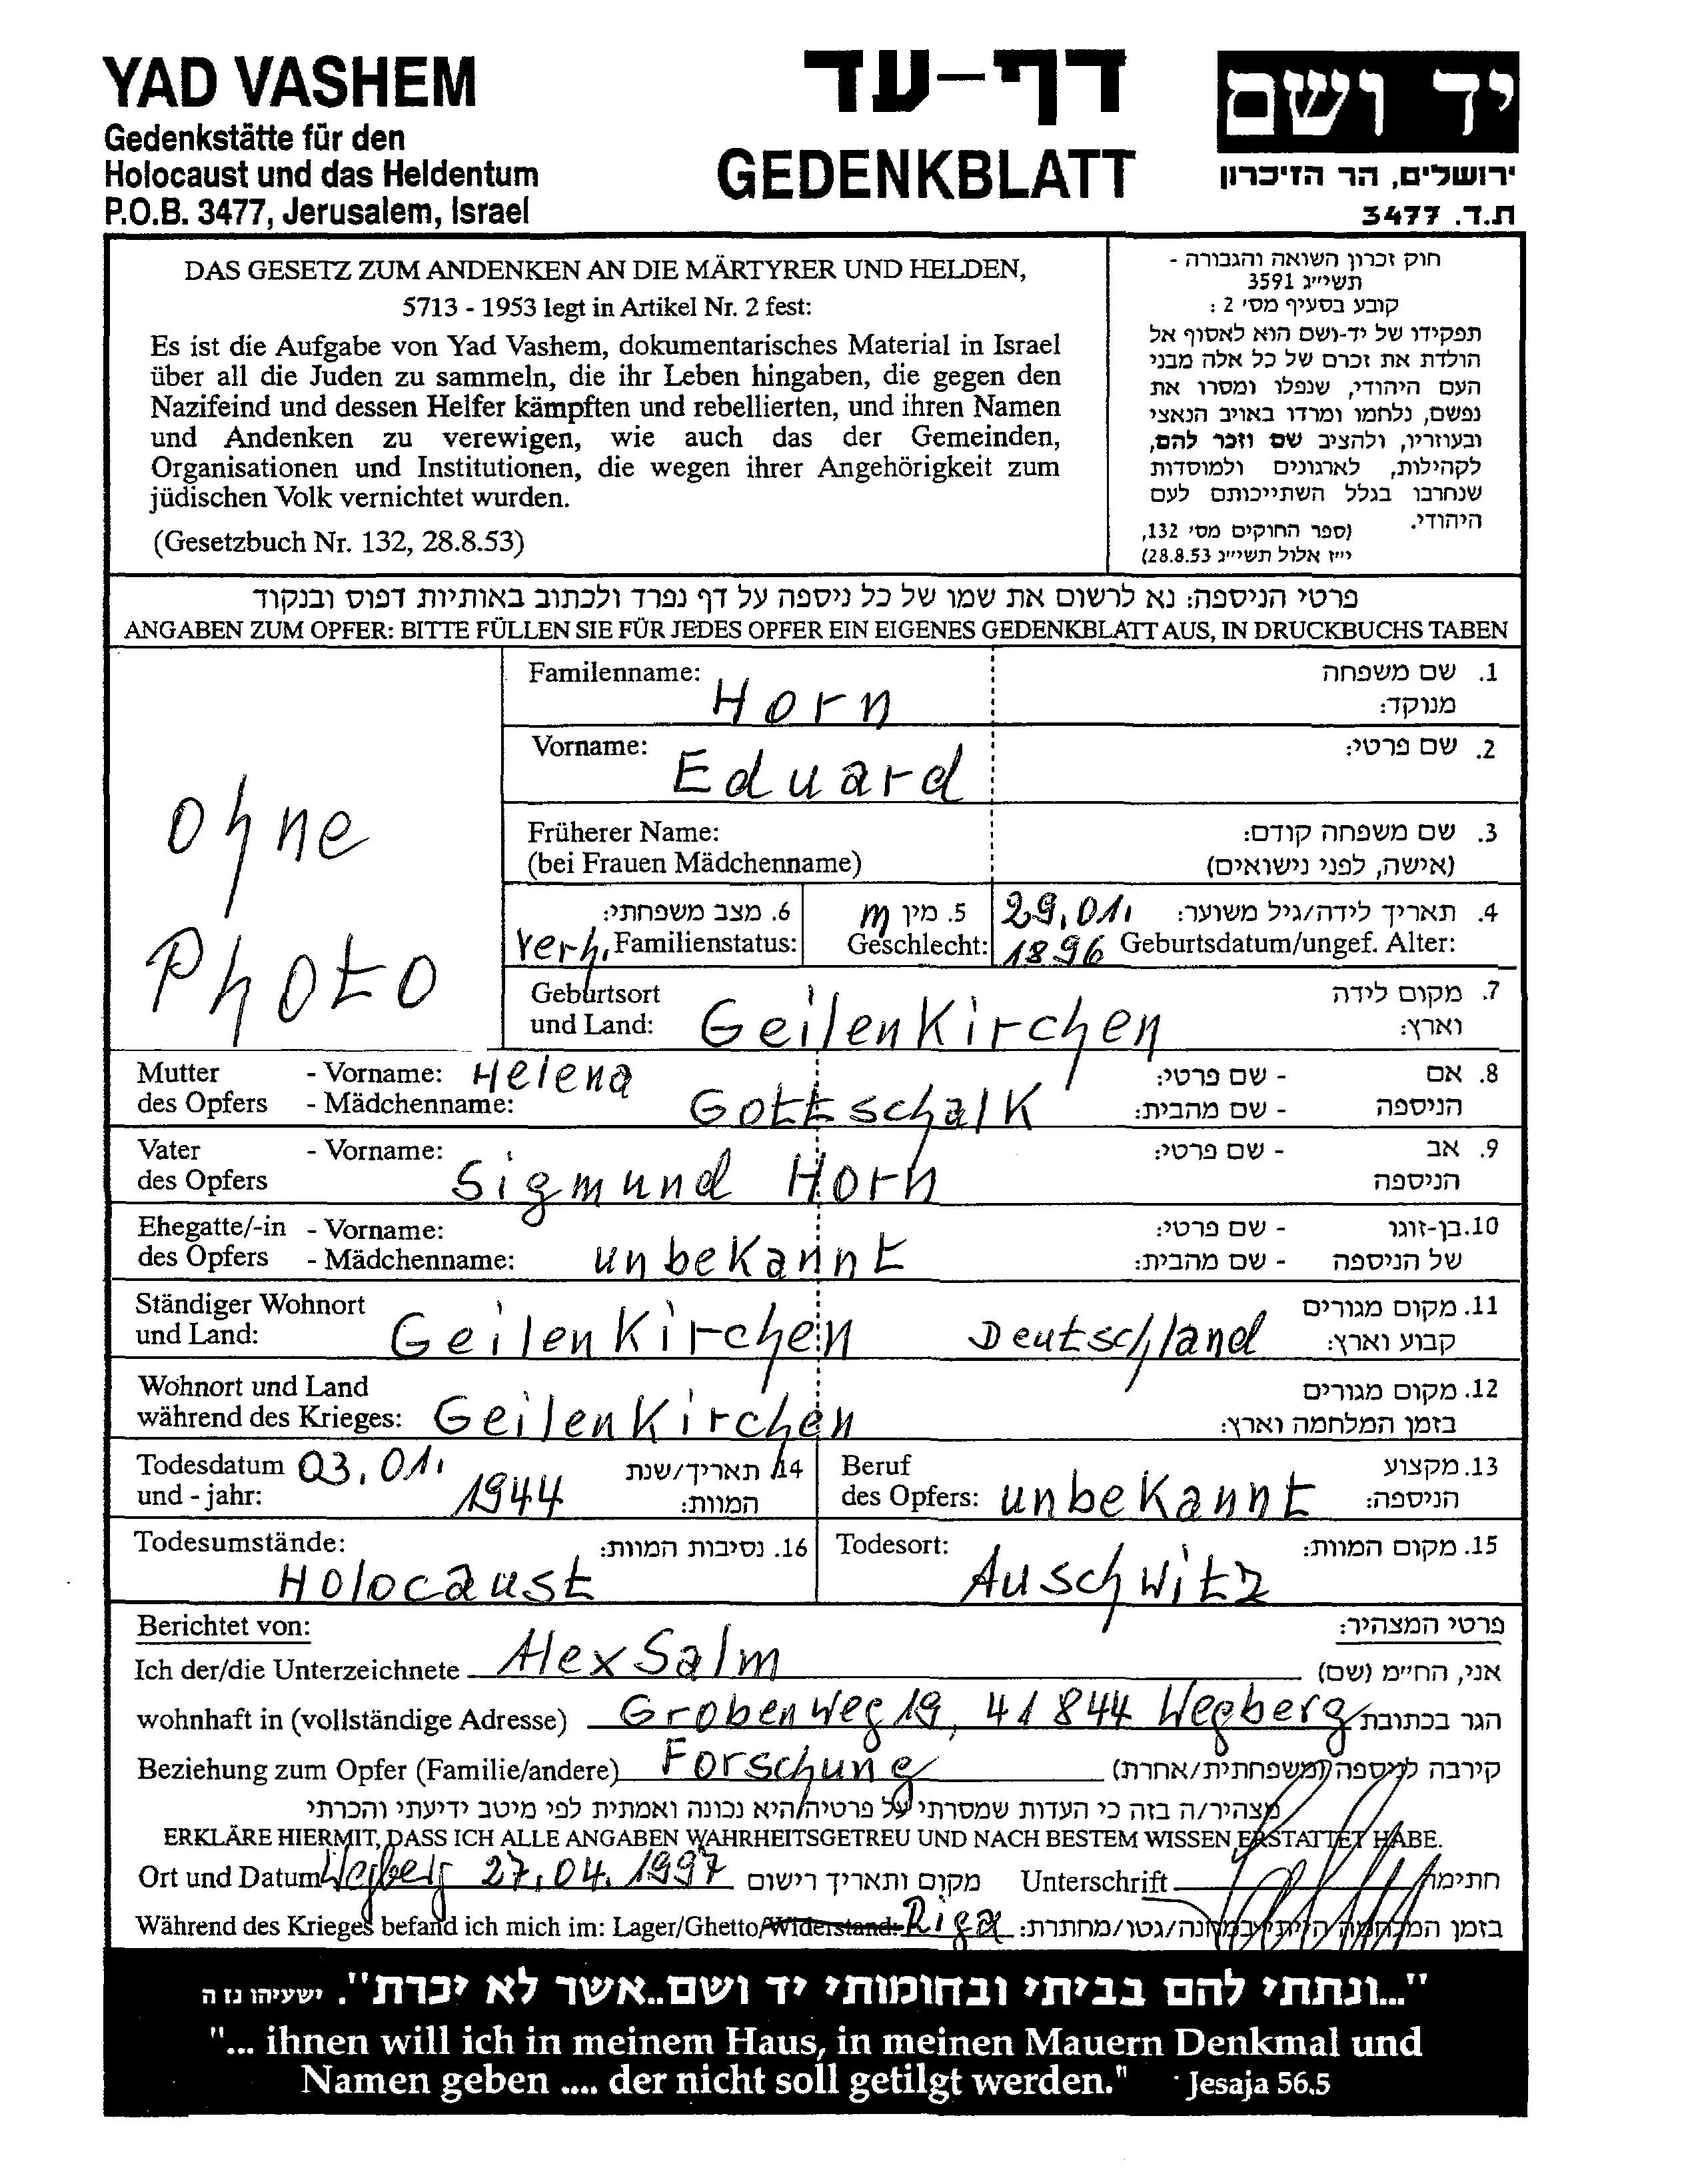 YAD VASHEM
Gedenkstätte für den
Holocaust und das Heldentum
P.O.B. 3477, Jerusalem, Israel
דף-עד
GEDENKBLATT
יד ושם
ירושלים, הר הזיכרון
ת.ד. 3477
DAS GESETZ ZUM ANDENKEN AN DIE MÄRTYRER UND HELDEN,
5713 - 1953 legt in Artikel Nr. 2 fest:
Es ist die Aufgabe von Yad Vashem, dokumentarisches Material in Israel
über all die Juden zu sammeln, die ihr Leben hingaben, die gegen den
Nazifeind und dessen Helfer kämpften und rebellierten, und ihren Namen
und Andenken zu verewigen, wie auch das der Gemeinden,
Organisationen und Institutionen, die wegen ihrer Angehörigkeit zum
jüdischen Volk vernichtet wurden.
(Gesetzbuch Nr. 132, 28.8.53)
חוק זכרון השואה והגבורה -
תשי״ג 3591
קובע בסעיף מס׳ 2 :
תפקידו של יד-ושם הוא לאסוף אל
הולדת את זכרם של כל אלה מבני
העם היהודי, שנפלו ומסרו את
נפשם, נלחמו ומרדו באויב הנאצי
ובעוזריו, ולהציב שם וזכר להם,
לקהילות, לארגונים ולמוסדות
שנחרבו בגלל השתייכותם לעם
היהודי.
(ספר החוקים מס׳ 132,
י״ז אלול תשי״ג 28.8.53)
פרטי הניספה: נא לרשום את שמו של כל ניספה על דף נפרד ולכתוב באותיות דפוס ובנקוד
ANGABEN ZUM OPFER: BITTE FÜLLEN SIE FÜR JEDES OPFER EIN EIGENES GEDENKBLATT AUS, IN DRUCKBUCHS TABEN
ohne
Photo
Familenname: Horn 1. שם משפחה
מנוקד:
Vorname: Eduard 2. שם פרטי:
Früherer Name: 3. שם משפחה קודם:
(bei Frauen Mädchenname) (אישה, לפני נישואים)
6. מצב משפחתי:
verh. Familienstatus:
5. מין m
Geschlecht:
29.01. 4. תאריך לידה/גיל משוער:
1896 Geburtsdatum/ungef. Alter:
Geburtsort 7. מקום לידה
und Land: Geilenkirchen וארץ:
Mutter - Vorname: Helena - שם פרטי: 8. אם
des Opfers - Mädchenname: Gottschalk - שם מהבית: הניספה
Vater - Vorname: - שם פרטי: 9. אב
des Opfers Sigmund Horn הניספה
Ehegatte/-in - Vorname: - שם פרטי: 10. בן-זוגו
des Opfers - Mädchenname: unbekannt - שם מהבית: של הניספה
Ständiger Wohnort 11. מקום מגורים
und Land: Geilenkirchen Deutschland קבוע וארץ:
Wohnort und Land 12. מקום מגורים
während des Krieges: Geilenkirchen בזמן המלחמה וארץ:
Todesdatum 03.01. 14 תאריך/שנת
und - jahr: 1944 המוות:
Beruf 13. מקצוע
des Opfers: unbekannt הניספה:
Todesumstände: 16. נסיבות המוות:
Holocaust
Todesort: 15. מקום המוות:
Auschwitz
Berichtet von: פרטי המצהיר:
Ich der/die Unterzeichnete Alex Salm אני, הח״מ (שם)
wohnhaft in (vollständige Adresse) Grobenweg 19, 41844 Wegberg הגר בכתובת
Beziehung zum Opfer (Familie/andere) Forschung קירבה לניספה (משפחתית/אחרת)
מצהיר/ה בזה כי העדות שמסרתי על פרטיה היא נכונה ואמתית לפי מיטב ידיעתי והכרתי
ERKLÄRE HIERMIT, DASS ICH ALLE ANGABEN WAHRHEITSGETREU UND NACH BESTEM WISSEN ERSTATTET HABE.
Ort und Datum Wegberg 27.04.1997 מקום ותאריך רישום Unterschrift חתימה
Während des Krieges befand ich mich im: Lager/Ghetto/Widerstand: Riga בזמן המלחמה הייתי במחנה/גטו/מחתרת:
"...ונתתי להם בביתי ובחומותי יד ושם..אשר לא יכרת". ישעיהו נז ה
"... ihnen will ich in meinem Haus, in meinen Mauern Denkmal und
Namen geben .... der nicht soll getilgt werden." Jesaja 56.5